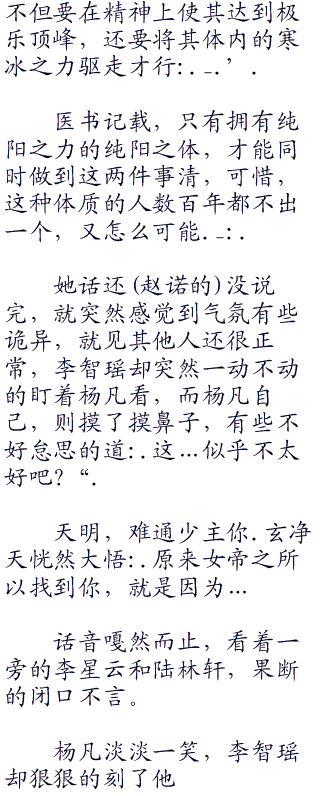 不但要在精神上使其达到极
乐顶峰，还要将其体内的寒
冰之力驱走才行:.-.’.
医书记载，只有拥有纯
阳之力的纯阳之体，才能同
时做到这两件事清，可惜，
这种体质的人数百年都不出
一个，又怎么可能.-:.
她话还(赵诺的)没说
完，就突然感觉到气氛有些
诡异，就见其他人还很正
常，李智瑶却突然一动不动
的盯着杨凡看，而杨凡自
己，则摸了摸鼻子，有些不
好怠思的道:.这...似乎不太
好吧？“.
天明，难通少主你.玄净
天恍然大悟:.原来女帝之所
以找到你，就是因为...
话音嘎然而止，看着一
旁的李星云和陆林轩，果断
的闭口不言。
杨凡淡淡一笑，李智瑶
却狠狠的刻了他